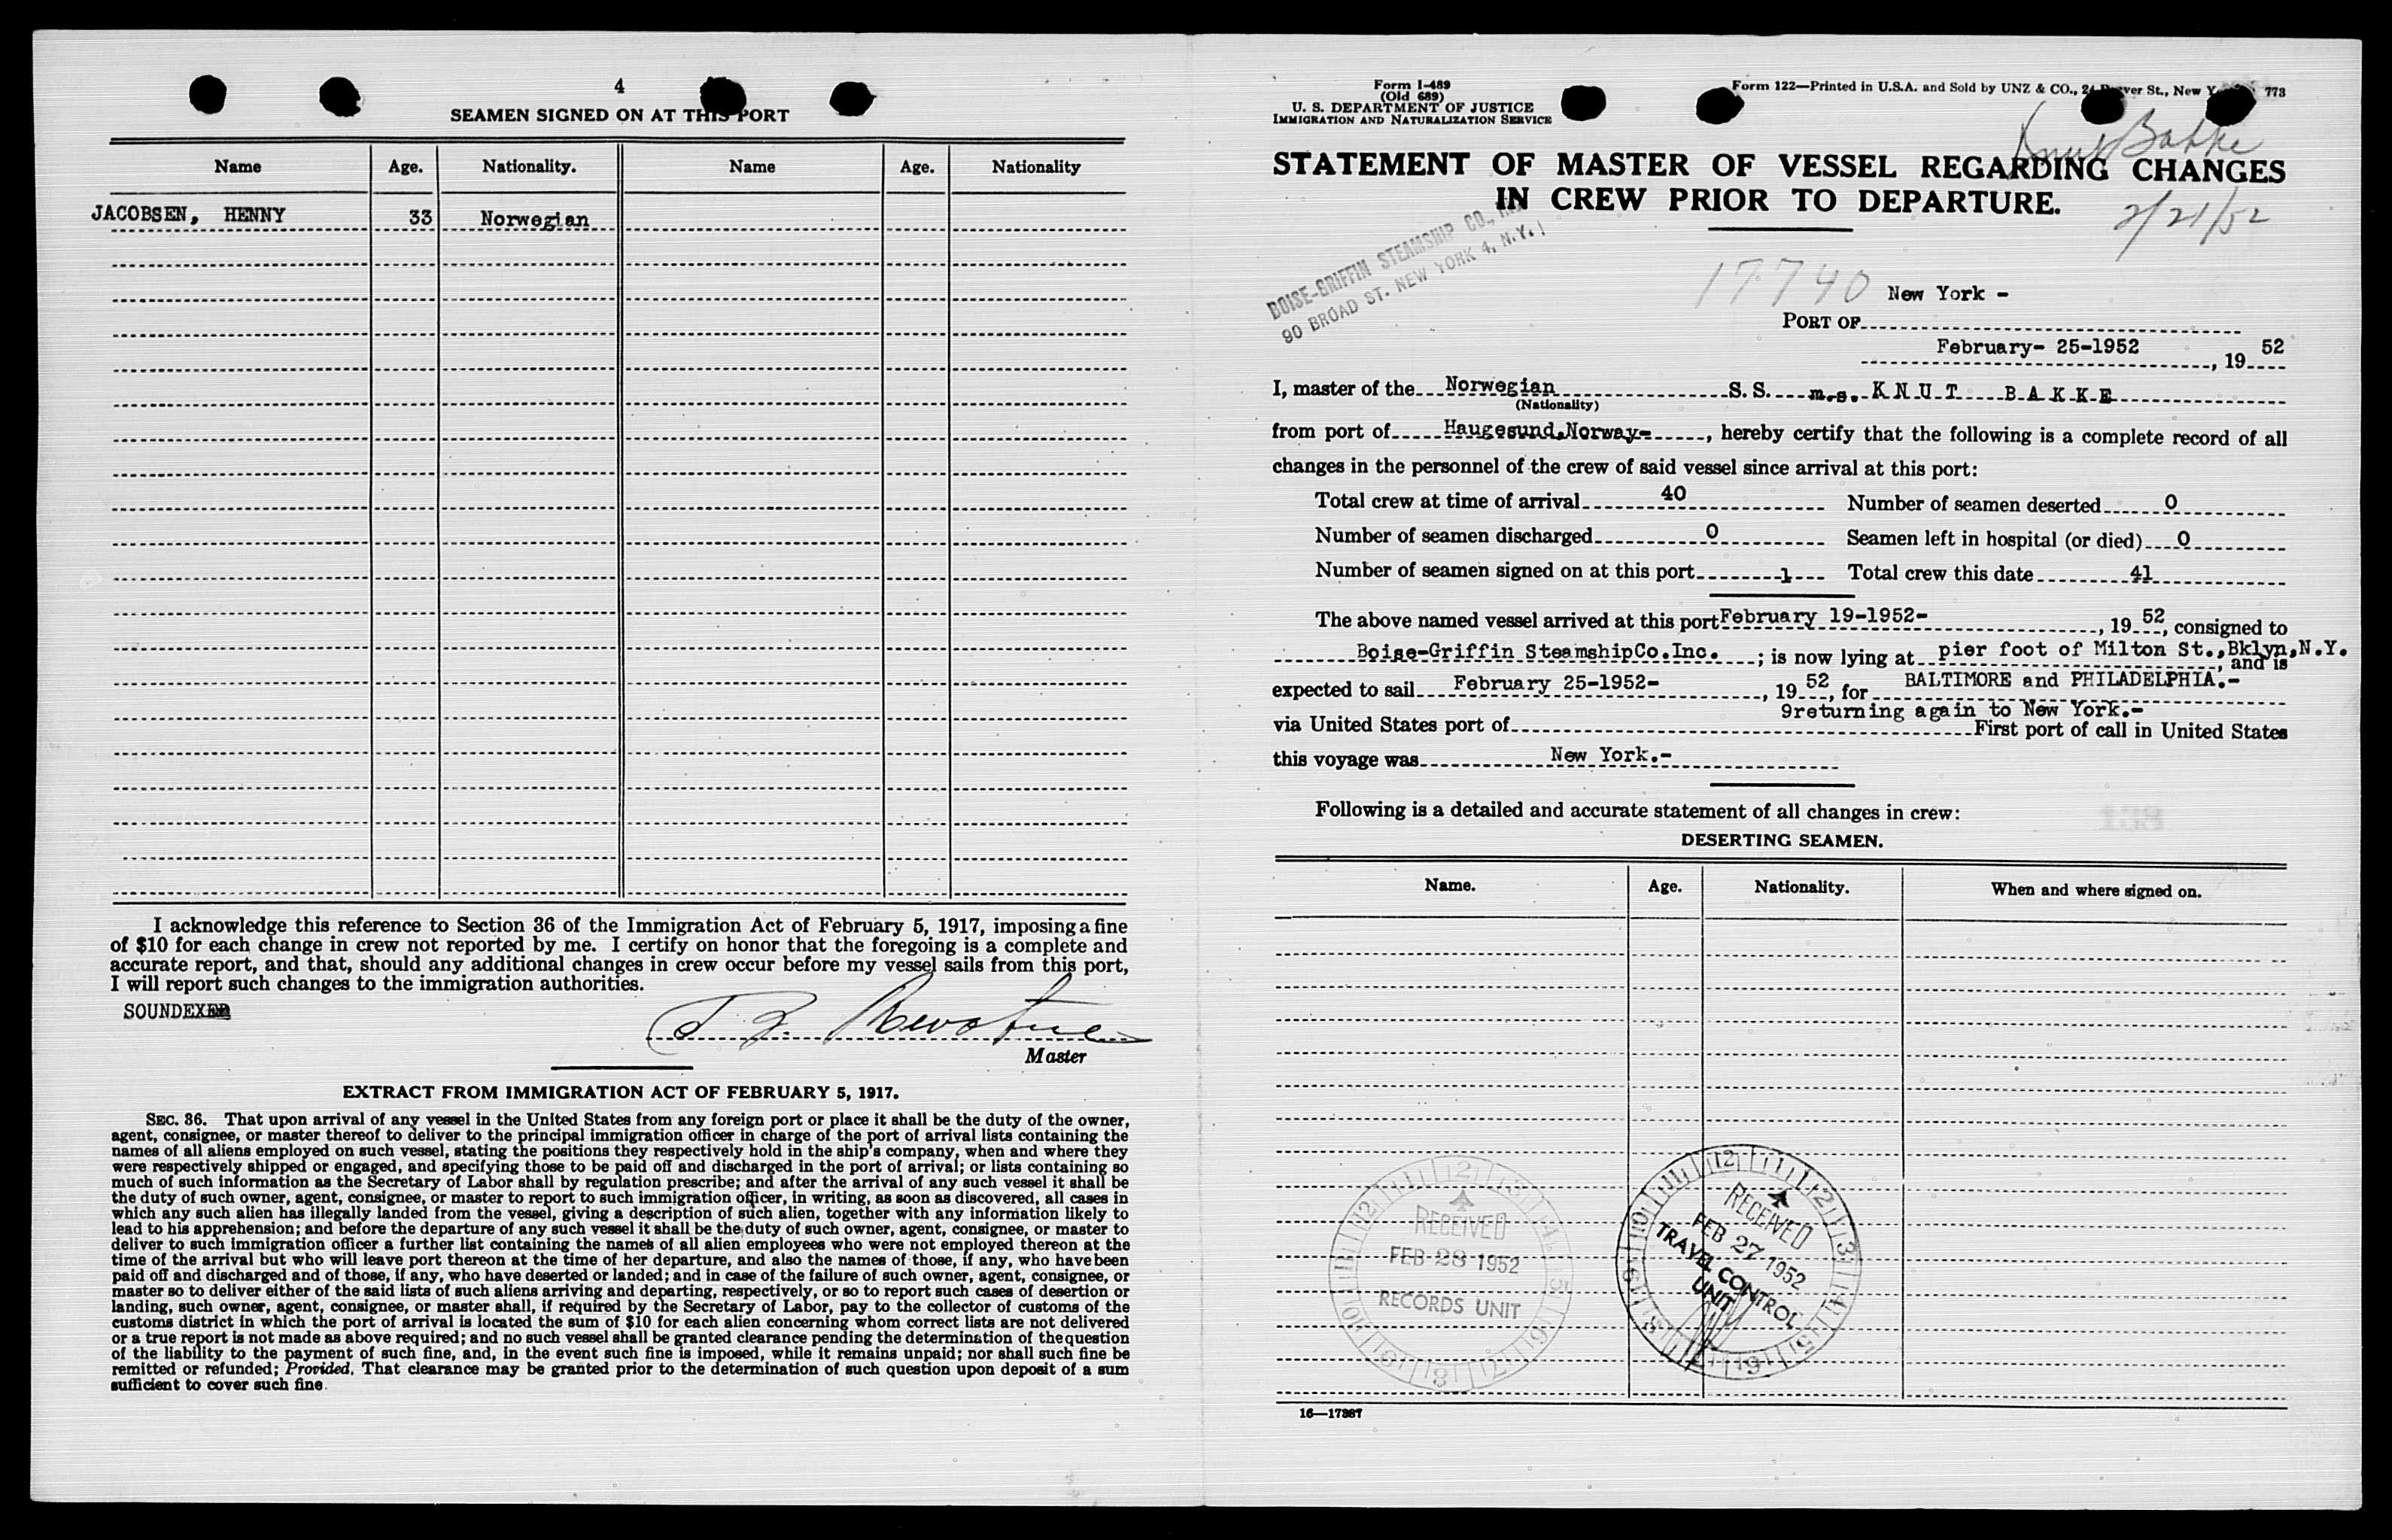 4
SEAMEN SIGNED ON AT THIS PORT
Name Age. Nationality. Name Age. Nationality
JACOBSEN, HENNY 33 Norwegian
I acknowledge this reference to Section 36 of the Immigration Act of February 5, 1917, imposing a fine
of $10 for each change in crew not reported by me. I certify on honor that the foregoing is a complete and
accurate report, and that, should any additional changes in crew occur before my vessel sails from this port,
I will report such changes to the immigration authorities.
SOUNDEXED
Master
EXTRACT FROM IMMIGRATION ACT OF FEBRUARY 5, 1917.
SEC. 36. That upon arrival of any vessel in the United States from any foreign port or place it shall be the duty of the owner,
agent, consignee, or master thereof to deliver to the principal immigration officer in charge of the port of arrival lists containing the
names of all aliens employed on such vessel, stating the positions they respectively hold in the ship's company, when and where they
were respectively shipped or engaged, and specifying those to be paid off and discharged in the port of arrival; or lists containing so
much of such information as the Secretary of Labor shall by regulation prescribe; and after the arrival of any such vessel it shall be
the duty of such owner, agent, consignee, or master to report to such immigration officer, in writing, as soon as discovered, all cases in
which any such alien has illegally landed from the vessel, giving a description of such alien, together with any information likely to
lead to his apprehension; and before the departure of any such vessel it shall be the duty of such owner, agent, consignee, or master to
deliver to such immigration officer a further list containing the names of all alien employees who were not employed thereon at the
time of the arrival but who will leave port thereon at the time of her departure, and also the names of those, if any, who have been
paid off and discharged and of those, if any, who have deserted or landed; and in case of the failure of such owner, agent, consignee, or
master so to deliver either of the said lists of such aliens arriving and departing, respectively, or so to report such cases of desertion or
landing, such owner, agent, consignee, or master shall, if required by the Secretary of Labor, pay to the collector of customs of the
customs district in which the port of arrival is located the sum of $10 for each alien concerning whom correct lists are not delivered
or a true report is not made as above required; and no such vessel shall be granted clearance pending the determination of the question
of the liability to the payment of such fine, and, in the event such fine is imposed, while it remains unpaid; nor shall such fine be
remitted or refunded; Provided, That clearance may be granted prior to the determination of such question upon deposit of a sum
sufficient to cover such fine.
Form I-489
(Old 689)
U. S. DEPARTMENT OF JUSTICE
IMMIGRATION AND NATURALIZATION SERVICE
Form 122—Printed in U.S.A. and Sold by UNZ & CO., 24 St., New 773
Knut Bakke
STATEMENT OF MASTER OF VESSEL REGARDING CHANGES
IN CREW PRIOR TO DEPARTURE.
2/21/52
BOISE-GRIFFIN STEAMSHIP CO.,
90 BROAD ST. NEW YORK 4, N.Y.
17740
New York -
PORT OF
February- 25-1952, 19 52
I, master of the Norwegian S. S. m.s. KNUT BAKKE
(Nationality)
from port of Haugesund,Norway-, hereby certify that the following is a complete record of all
changes in the personnel of the crew of said vessel since arrival at this port:
Total crew at time of arrival 40 Number of seamen deserted 0
Number of seamen discharged 0 Seamen left in hospital (or died) 0
Number of seamen signed on at this port 1 Total crew this date 41
The above named vessel arrived at this port February 19-1952-, 19 52, consigned to
Boise-Griffin SteamshipCo.Inc.; is now lying at pier foot of Milton St.,Bklyn,N.Y., and is
expected to sail February 25-1952-, 19 52, for BALTIMORE and PHILADELPHIA.-
9returning again to New York.-
via United States port of First port of call in United States
this voyage was New York.-
Following is a detailed and accurate statement of all changes in crew:
DESERTING SEAMEN.
Name. Age. Nationality. When and where signed on.
RECEIVED
FEB 28 1952
RECORDS UNIT
RECEIVED
FEB 27 1952
TRAVEL CONTROL
UNIT
16—17387